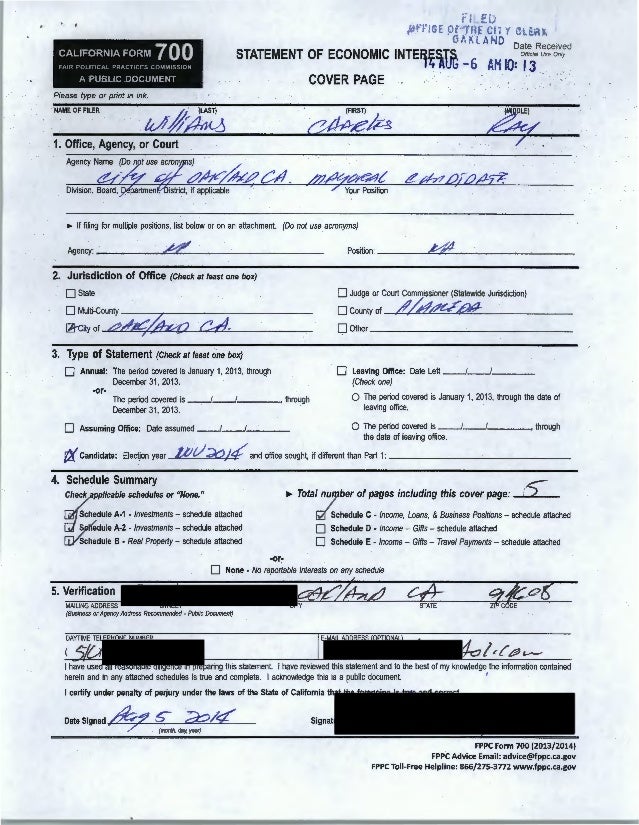 FILED
OFFICE OF THE CITY CLERK
OAKLAND
Date Received
Official Use Only
14 AUG -6 AM 10: 13
CALIFORNIA FORM 700
FAIR POLITICAL PRACTICES COMMISSION
A PUBLIC DOCUMENT
STATEMENT OF ECONOMIC INTERESTS
COVER PAGE
Please type or print in ink.
NAME OF FILER (LAST) (FIRST) (MIDDLE)
Williams CHARLES RAY
1. Office, Agency, or Court
Agency Name (Do not use acronyms)
City of OAKLAND, CA. MAYORAL CANDIDATE
Division, Board, Department, District, if applicable Your Position
► If filing for multiple positions, list below or on an attachment. (Do not use acronyms)
Agency: NA Position: NA
2. Jurisdiction of Office (Check at least one box)
State Judge or Court Commissioner (Statewide Jurisdiction)
Multi-County County of ALAMEDA
City of OAKLAND CA. Other
3. Type of Statement (Check at least one box)
Annual: The period covered is January 1, 2013, through Leaving Office: Date Left ___/___/___
December 31, 2013. (Check one)
-or-
The period covered is ___/___/___, through The period covered is January 1, 2013, through the date of
December 31, 2013. leaving office.
Assuming Office: Date assumed ___/___/___ The period covered is ___/___/___, through
the date of leaving office.
Candidate: Election year NOV 2014 and office sought, if different than Part 1:
4. Schedule Summary
Check applicable schedules or "None." ► Total number of pages including this cover page: 5
Schedule A-1 - Investments – schedule attached Schedule C - Income, Loans, & Business Positions – schedule attached
Schedule A-2 - Investments – schedule attached Schedule D - Income – Gifts – schedule attached
Schedule B - Real Property – schedule attached Schedule E - Income – Gifts – Travel Payments – schedule attached
-or-
None - No reportable interests on any schedule
5. Verification
OAKLAND CA 94608
MAILING ADDRESS STREET CITY STATE ZIP CODE
(Business or Agency Address Recommended - Public Document)
DAYTIME TELEPHONE NUMBER E-MAIL ADDRESS (OPTIONAL)
(510 aol.com
I have used all reasonable diligence in preparing this statement. I have reviewed this statement and to the best of my knowledge the information contained
herein and in any attached schedules is true and complete. I acknowledge this is a public document.
I certify under penalty of perjury under the laws of the State of California that the foregoing is true and correct.
Date Signed Aug 5 2014 Signat
(month, day, year)
FPPC Form 700 (2013/2014)
FPPC Advice Email: advice@fppc.ca.gov
FPPC Toll-Free Helpline: 866/275-3772 www.fppc.ca.gov